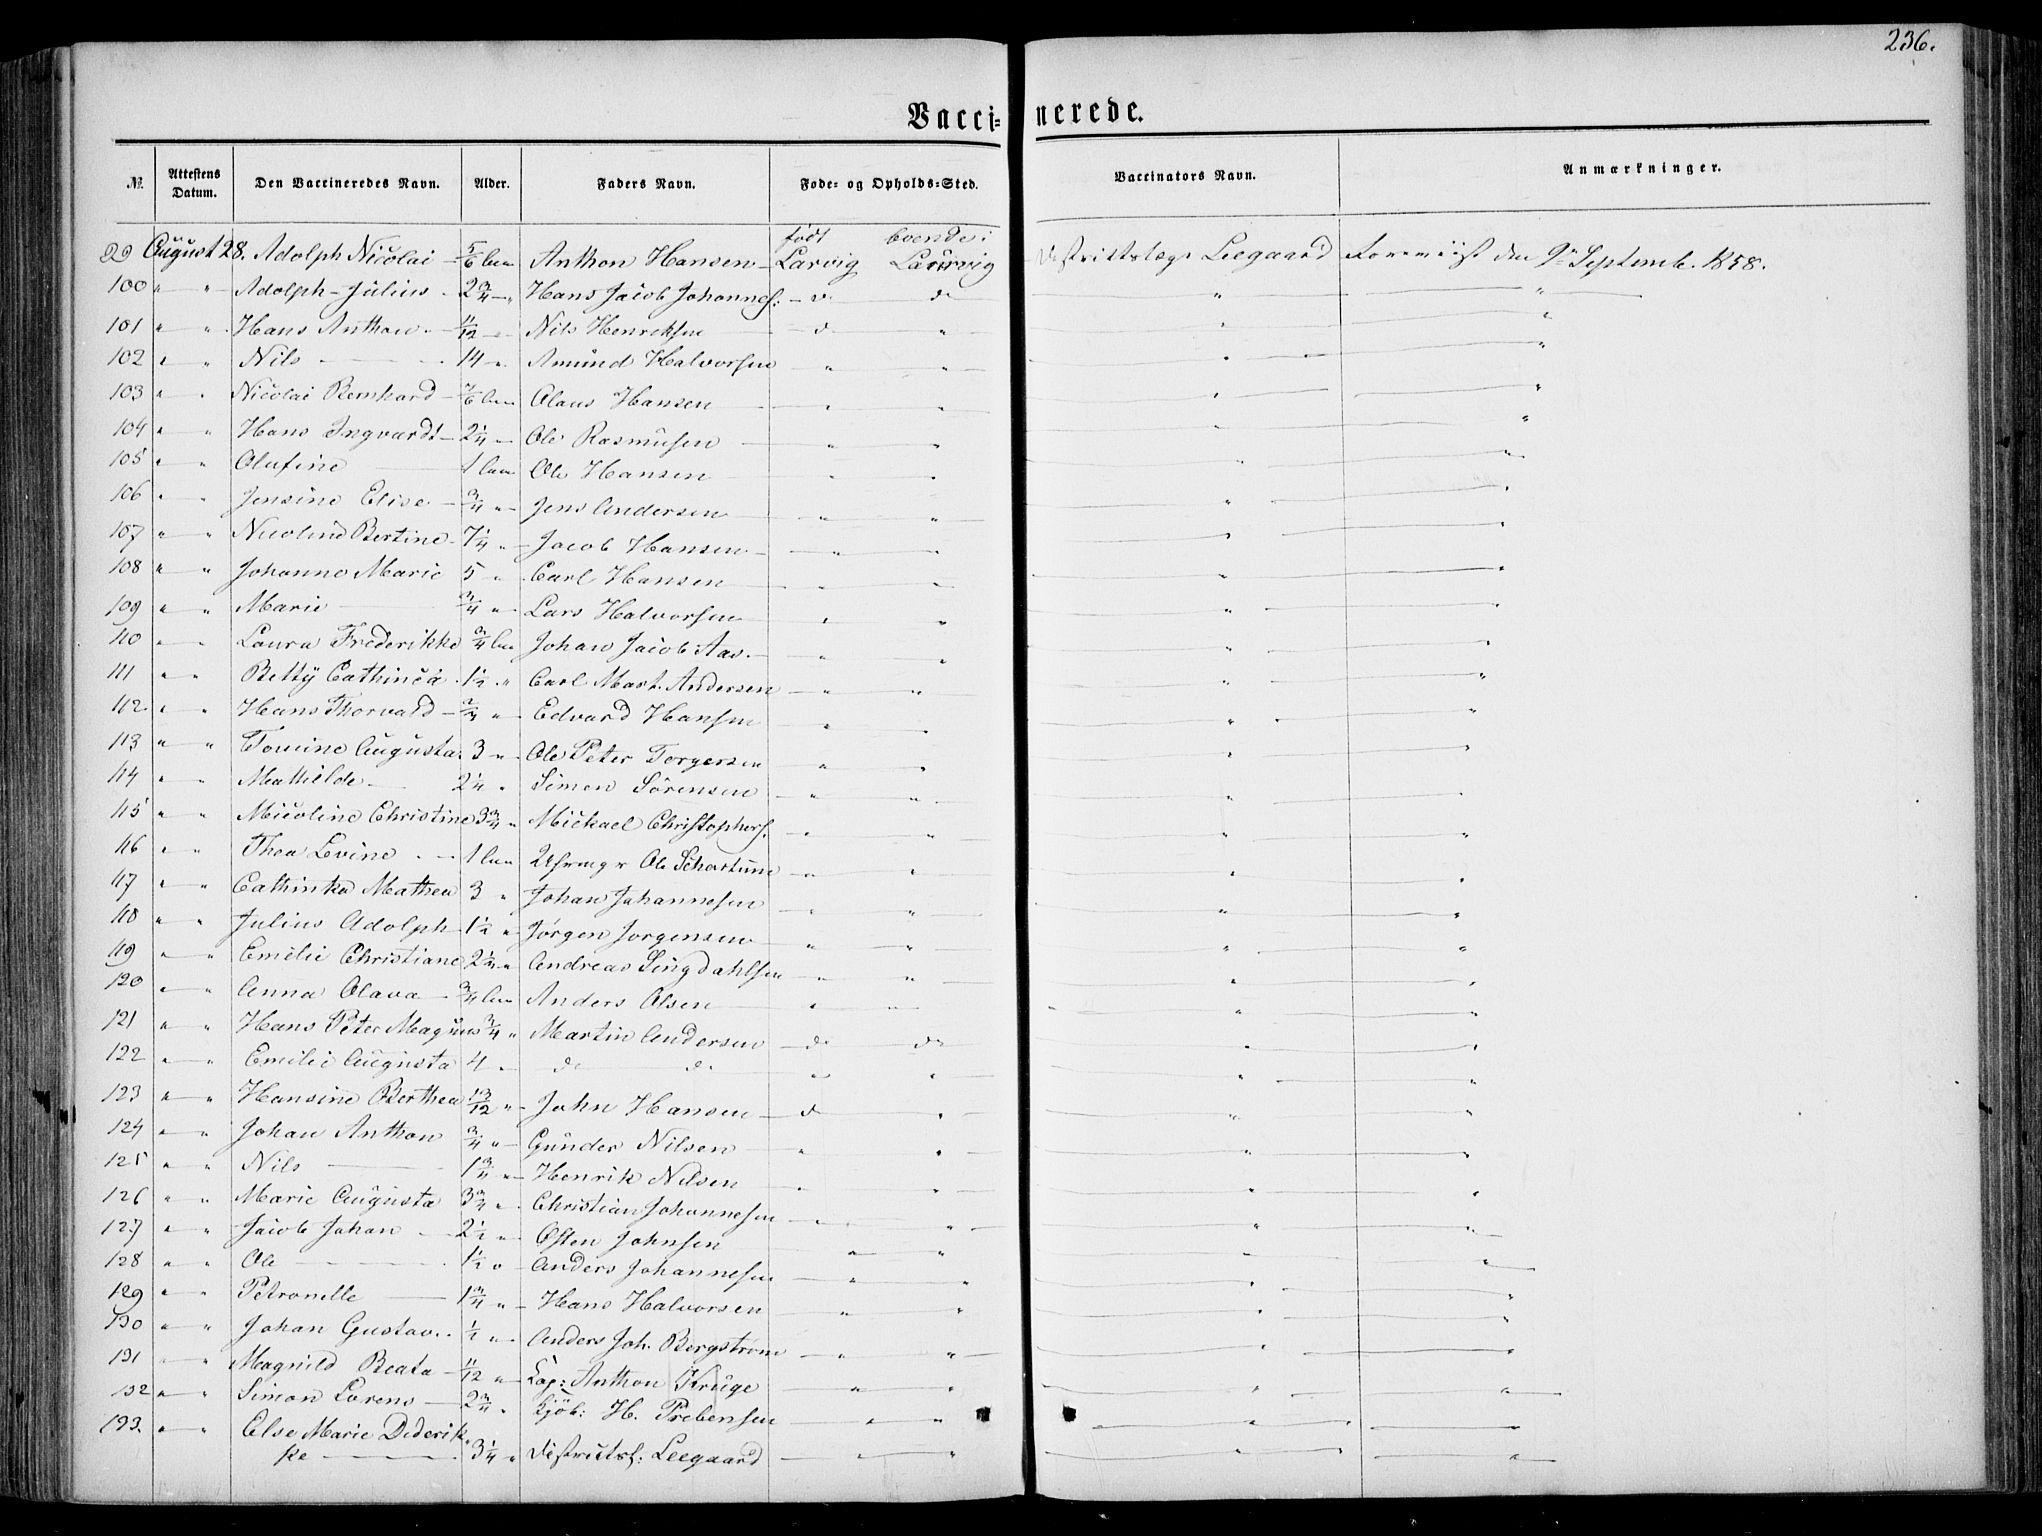 236.
Vacci= nerede.
№. Attestens Datum. Den Vaccineredes Navn. Alder. Faders Navn. Føde= og Opholds=Sted. Vaccinators Navn. Anmærkninger.
født boende i
99 August 28. Adolph Nicolai – 5/6 Anthon Hansen – Larvig Laurvig Leegaard den 9 Septemb. 1858.
100 " " Adolph – Julius – 2 3/4 – " Hans Jacob Johannes: – d d " "
101 " " Hans Anthon – 11/12 – Nils Henriksen – d " " "
102 " " Nils – 14 – " Amund Halvorsen " " " "
103 " " Nicolai Bernhard – 7/6 Claus Hansen " " " "
104 " " Hans Ingvardt – 2 1/4 – Ole Rasmusen " " " "
105 " " Olufine 1 Ole Hansen " " " "
106 " " Jensine Elise – 3/4 " – Jens Andersen " " " "
107 " " Nicoline Bertine – 7 1/4 " – Jacob Hansen – " " " "
108 " " Johanne Marie 5 " Carl Hansen " " " "
109 " " Marie – 3/4 " – Lars Halvorsen " " " "
110 " " Laura Frederikke 3/4 Johan Jacob Aas. – " " " "
111 " " Betty Cathinca – 1 1/2 " Carl Mart. Andersen – " " " "
112 " " Hans Thorvald – 3/4 " – Edvard Hansen " " " "
113 " " Tomine Augusta 3 " – Ole Peter Torgersen " " " "
114 " " Mathilde – 2 1/4 " Simon Sörensen " " " "
115 " " Nicoline Christine 3 3/4 " Mickael Christophers. " " " "
116 " " Thea Levine – 1 Ole Schartum " " " "
117 " " Cathinka Mathea 3 " Johan Johannesen " " " "
118 " " Julius Adolph – 1 1/2 " Jørgen Jorgensen " " " "
119 " " Emilie Christiane 2 1/4 " Andreas Lingdahlsen " " " "
120 " " Anna Olava – 3/4 Anders Olsen – " " " "
121 " " Hans Peter Magnus 3/4 " Martin Andersen – do do " "
122 " " Emilie Augusta 4 " d d " " " "
123 " " Hansine Berthea 13/12 " – John Hansen – d " " "
124 " " Johan Anthon 3/4 " – Gunder Nilsen – " " " "
125 " " Nils – 1 3/4 " – Henrik Nilsen " " " "
126 " " Marie Augusta 3 3/4 " Christian Johannesen " " " "
127 " " Jacob Johan – 2 1/2 " Osten Johnsen " " " "
128 " " Ole – 1 1/2 " Anders Johannesen " " " "
129 " " Petronelle – 1 3/4 " – Hans Halvorsen " " " "
130 " " Johan Gustav. 1/2 " Anders Joh. Bergstrøm " " " "
131 " " Magnild Beata – 11/12 " Anthon Kruge " " " "
132 " " Simon Lorens – 2 3/4 " Kjöb: H. Prebensen " " " "
133. " " Else Marie Diderik-
ke – 3 1/4 " Districtsl: Leegaard " " " "